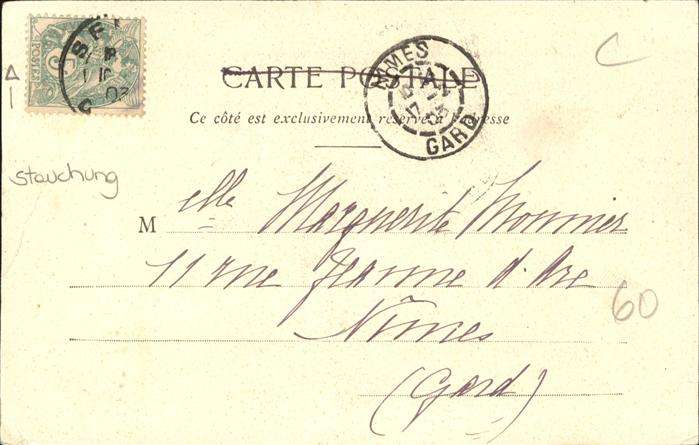 POSTES
CARTE POSTALE
Ce côté est exclusivement réservé à l'adresse
NIMES
GARD
C
Stauchung
M elle Marguerite Monnier
11 rue Jeanne d'Arc
Nîmes
(Gard)
60